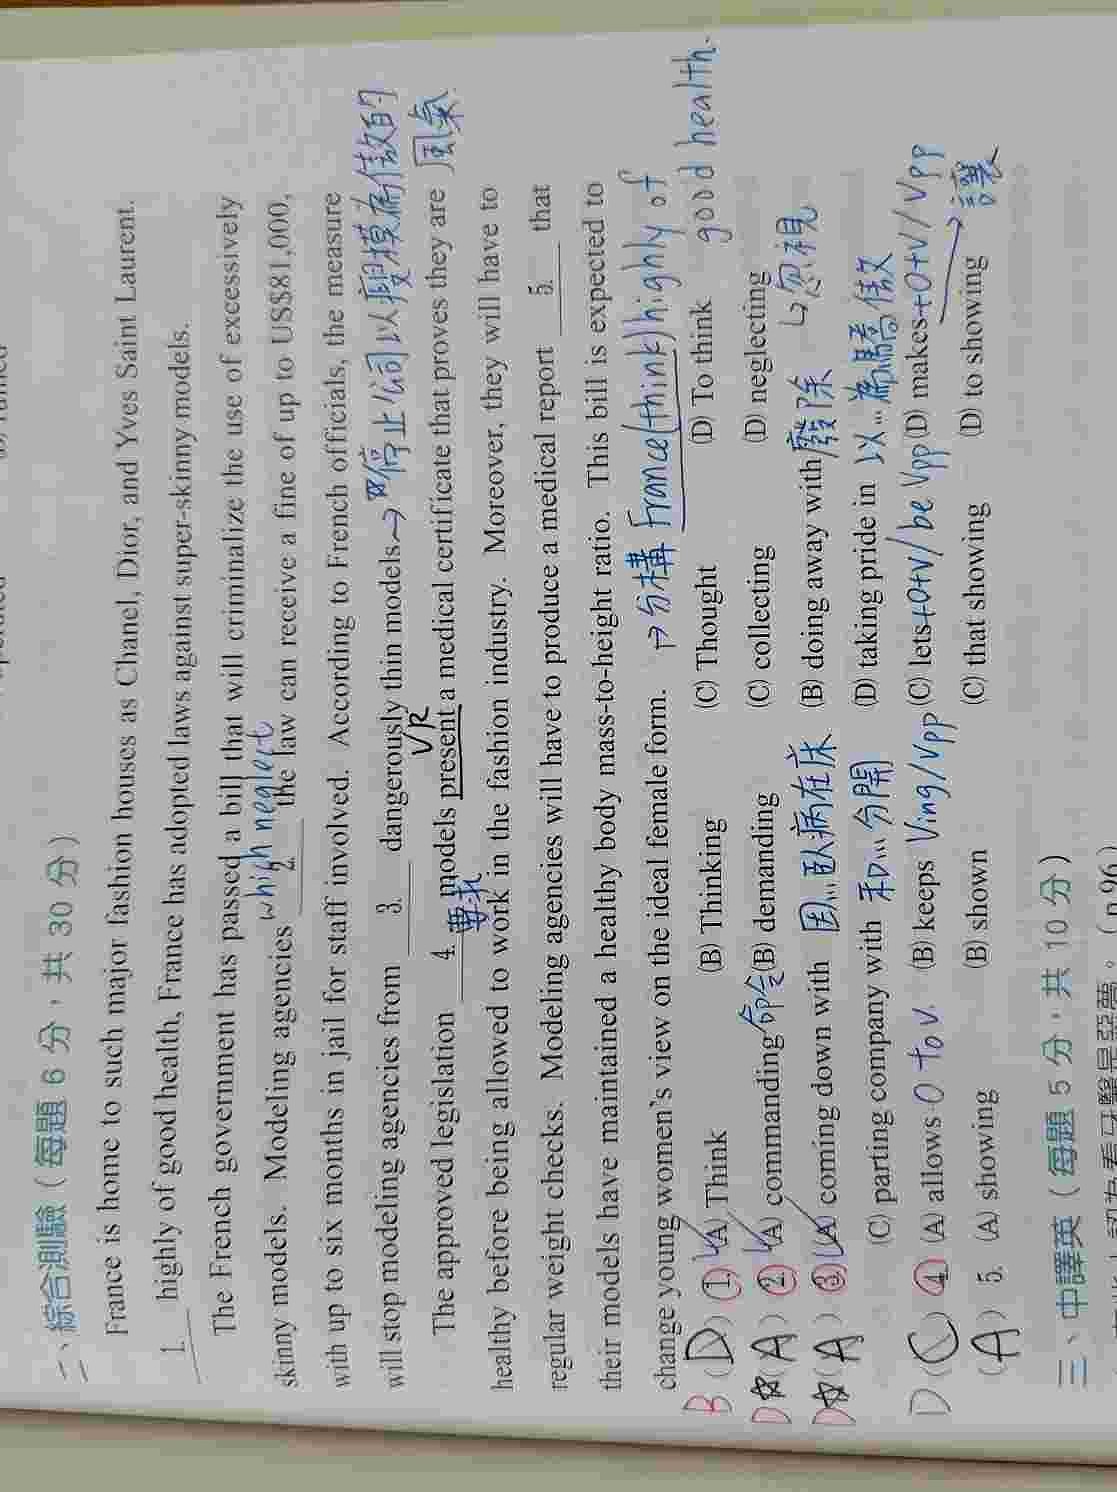 二、綜合測驗（每題 6 分，共 30 分）
France is home to such major fashion houses as Chanel, Dior, and Yves Saint Laurent.
1. highly of good health, France has adopted laws against super-skinny models.
The French government has passed a bill that will criminalize the use of excessively
which neglect
skinny models. Modeling agencies 2. the law can receive a fine of up to US$81,000,
with up to six months in jail for staff involved. According to French officials, the measure
will stop modeling agencies from 3. dangerously thin models. → 停止公司以瘦模為傲的
風氣
VR
The approved legislation 4. models present a medical certificate that proves they are
要求
healthy before being allowed to work in the fashion industry. Moreover, they will have to
regular weight checks. Modeling agencies will have to produce a medical report 5. that
their models have maintained a healthy body mass-to-height ratio. This bill is expected to
change young women's view on the ideal female form. → 分構 France (think) highly of
good health.
B (D) 1. (A) Think (B) Thinking (C) Thought (D) To think
D (A) 2. (A) commanding 命令 (B) demanding (C) collecting (D) neglecting ↳ 忽視
D (A) 3. (A) coming down with 因…臥病在床 (B) doing away with 廢除
(C) parting company with 和…分開 (D) taking pride in 以…為驕傲
D (C) 4. (A) allows O to V. (B) keeps Ving/Vpp (C) lets+O+V/be Vpp (D) makes+O+V/Vpp
→ 讓
(A) 5. (A) showing (B) shown (C) that showing (D) to showing
三、中譯英（每題 5 分，共 10 分）